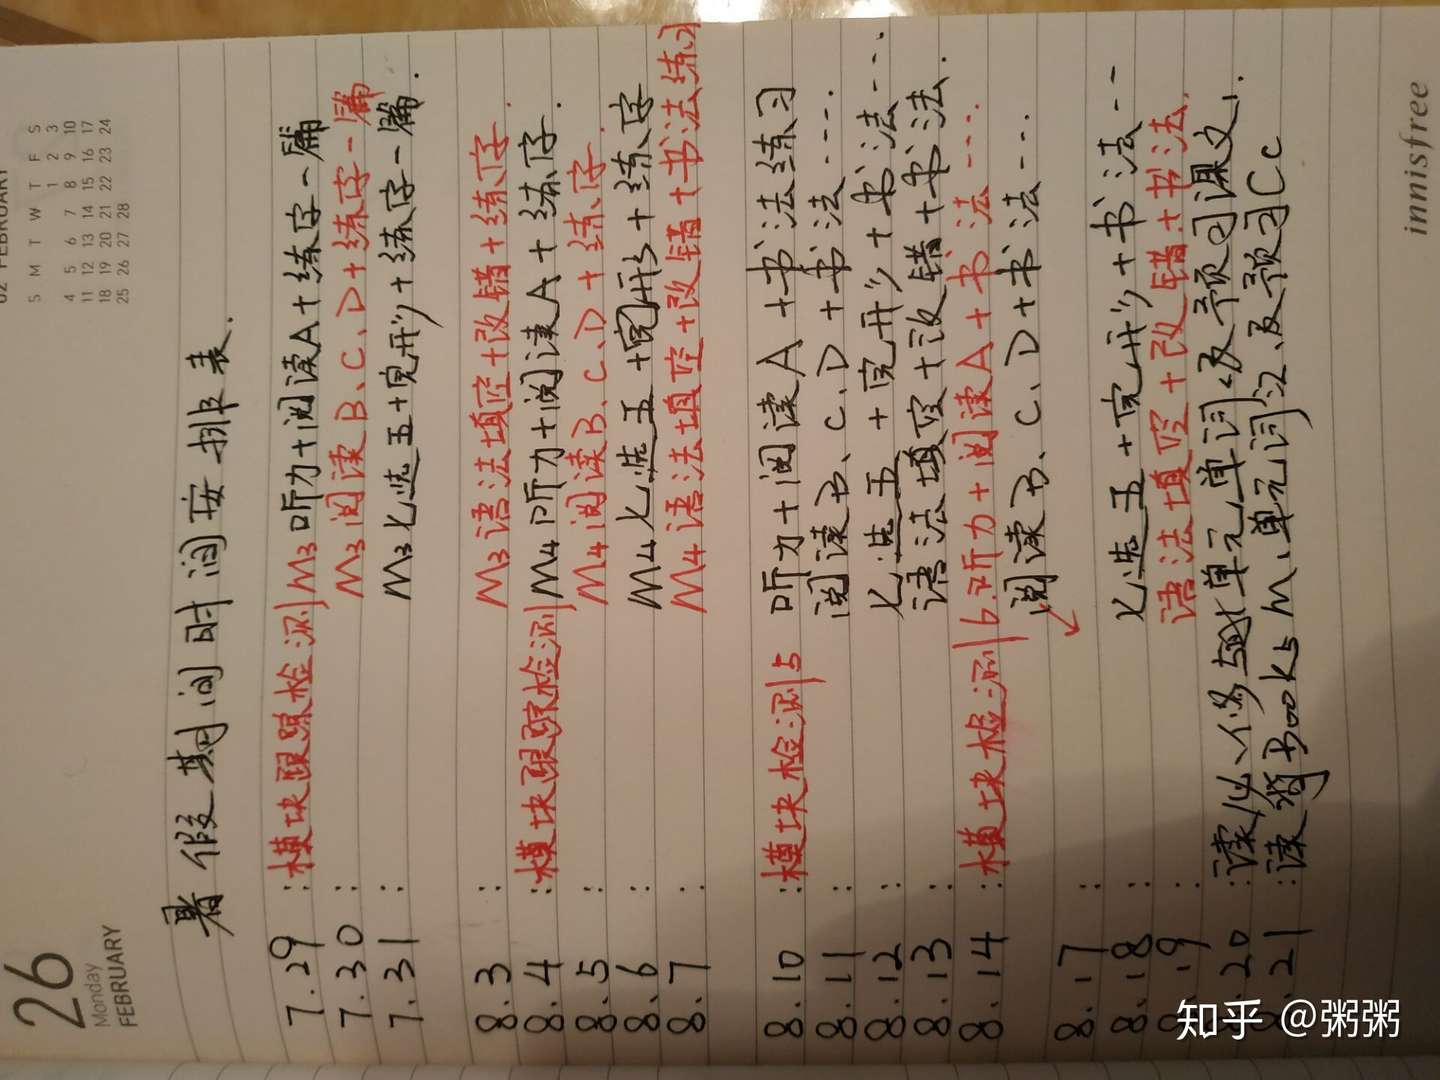 26
Monday
FEBRUARY
02 FEBRUARY
S M T W T F S
1 2 3
4 5 6 7 8 9 10
11 12 13 14 15 16 17
18 19 20 21 22 23 24
25 26 27 28
暑假期间时间安排表.
7.29 : 模块跟踪检测 M3 听力+阅读A+练字一篇
7.30 : M3 阅读B、C、D+练字一篇
7.31 : M3 七选五+完形+练字一篇.
8.3 : M3 语法填空+改错+练字.
8.4 : 模块跟踪检测 M4 听力+阅读A+练字.
8.5 : M4 阅读B、C、D+练字.
8.6 : M4 七选五+完形+练字
8.7 : M4 语法填空+改错+书法练习
8.10 : 模块检测5 听力+阅读A+书法练习
8.11 : 阅读B、C、D+书法....
8.12 : 七选五+完形+书法...
8.13 : 语法填空+改错+书法.
8.14 : 模块检测6 听力+阅读A+书法....
8.17 : 阅读B、C、D+书法...
8.18 : 七选五+完形+书法...
8.19 : 语法填空+改错+书法.
.20 : 读必修5 单元单词及预习课文.
.21 : 读背Book5 M1单元词汇及预习Cc
innisfree
知乎 @粥粥